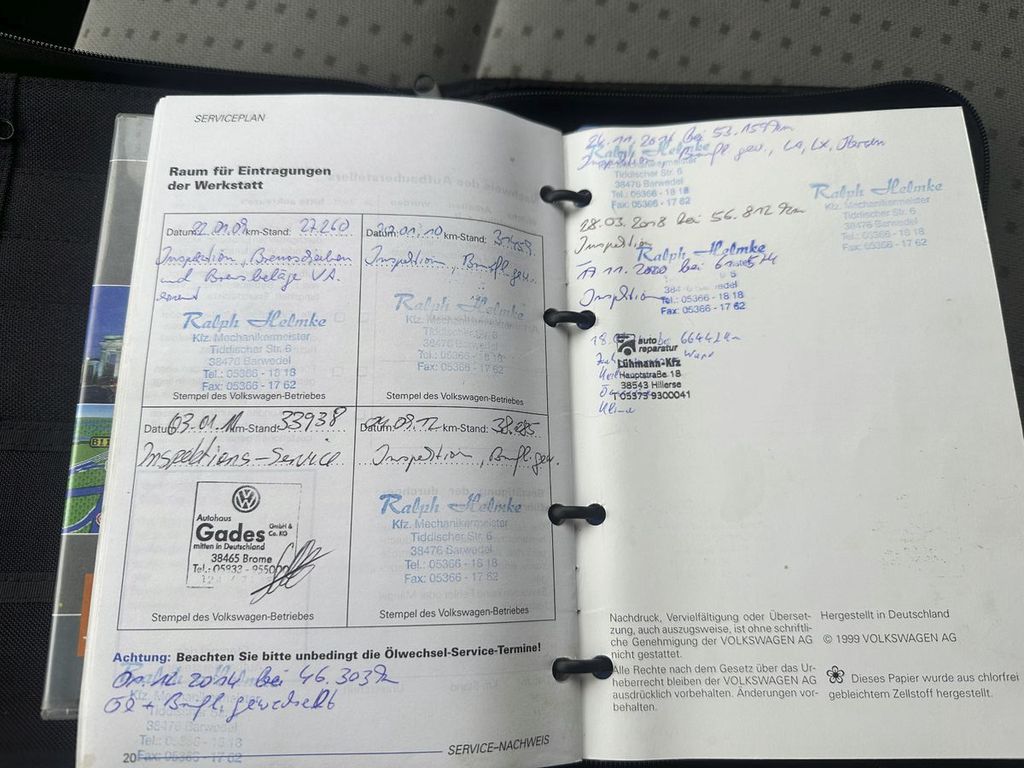 SERVICEPLAN
Raum für Eintragungen
der Werkstatt
Datum 22.01.09 km-Stand: 27260
Inspektion, Bremsscheiben
und Bremsbeläge VA.
Ralph Helmke
Kfz. Mechanikermeister
Tiddischer Str. 6
38476 Barwedel
Tel.: 05366 - 18 18
Fax: 05366 - 17 62
Stempel des Volkswagen-Betriebes
Datum 01.10 km-Stand:
Inspektion, Bremsfl. gew.
Ralph Helmke
Kfz. Mechanikermeister
Tiddischer Str. 6
38476 Barwedel
Tel.: 05366 - 18 18
Fax: 05366 - 17 62
Stempel des Volkswagen-Betriebes
Datum 03.01.11 km-Stand: 33938
Inspektions-Service
Autohaus
Gades GmbH & Co. KG
mitten in Deutschland
38465 Brome
Tel.: 05833 - 955000
Stempel des Volkswagen-Betriebes
Datum 09.12 km-Stand: 38.085
Inspektion, Bremsfl. gew.
Ralph Helmke
Kfz. Mechanikermeister
Tiddischer Str. 6
38476 Barwedel
Tel.: 05366 - 18 18
Fax: 05366 - 17 62
Stempel des Volkswagen-Betriebes
Achtung: Beachten Sie bitte unbedingt die Ölwechsel-Service-Termine!
2014 bei 46.303km
Öl + Bremsfl. gewechselt
Tel.: 05366 - 18 18
20 Fax: 05366 - 17 62
SERVICE–NACHWEIS
11.2016 bei 53.159km
Ralph Helmke
Tiddischer Str. 6
38476 Barwedel
Tel.: 05366 - 18 18
Fax: 05366 - 17 62
Ralph Helmke
Kfz. Mechanikermeister
Tiddischer Str. 6
38476 Barwedel
Tel.: 05366 - 18 18
Fax: 05366 - 17 62
28.03.2018 bei 56.812km
Inspektion
Ralph Helmke
11.2020 bei
Inspektion
Tel.: 05366 - 18 18
Fax: 05366 - 17 62
auto
reparatur
Lühmann-Kfz
Hauptstraße 18
38543 Hillerse
T 05373 9300041
Nachdruck, Vervielfältigung oder Überset-
zung, auch auszugsweise, ist ohne schriftli-
che Genehmigung der VOLKSWAGEN AG
nicht gestattet.
Alle Rechte nach dem Gesetz über das Ur-
heberrecht bleiben der VOLKSWAGEN AG
ausdrücklich vorbehalten. Änderungen vor-
behalten.
Hergestellt in Deutschland
© 1999 VOLKSWAGEN AG
Dieses Papier wurde aus chlorfrei
gebleichtem Zellstoff hergestellt.